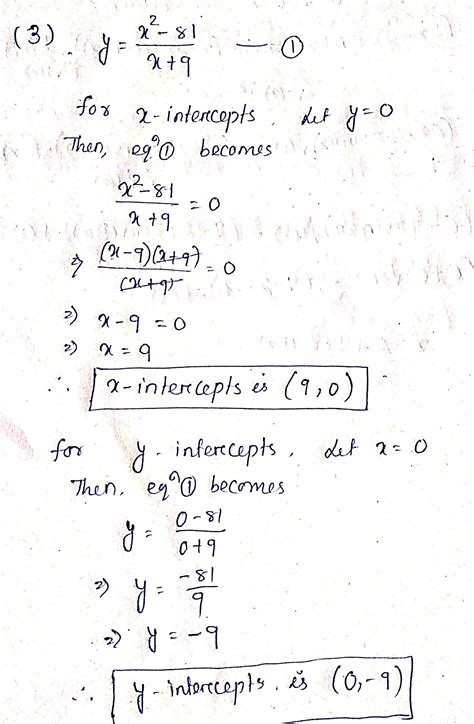 (3). y = (x² - 81)/(x + 9) — ①
for x-intercepts, Let y = 0
Then, eqⁿ① becomes
(x² - 81)/(x + 9) = 0
⇒ (x - 9)(x + 9)/(x + 9) = 0
⇒ x - 9 = 0
⇒ x = 9
∴ x-intercepts is (9, 0)
for y-intercepts, Let x = 0
Then, eqⁿ① becomes
y = (0 - 81)/(0 + 9)
⇒ y = -81/9
⇒ y = -9
∴ y-intercepts is (0, -9)